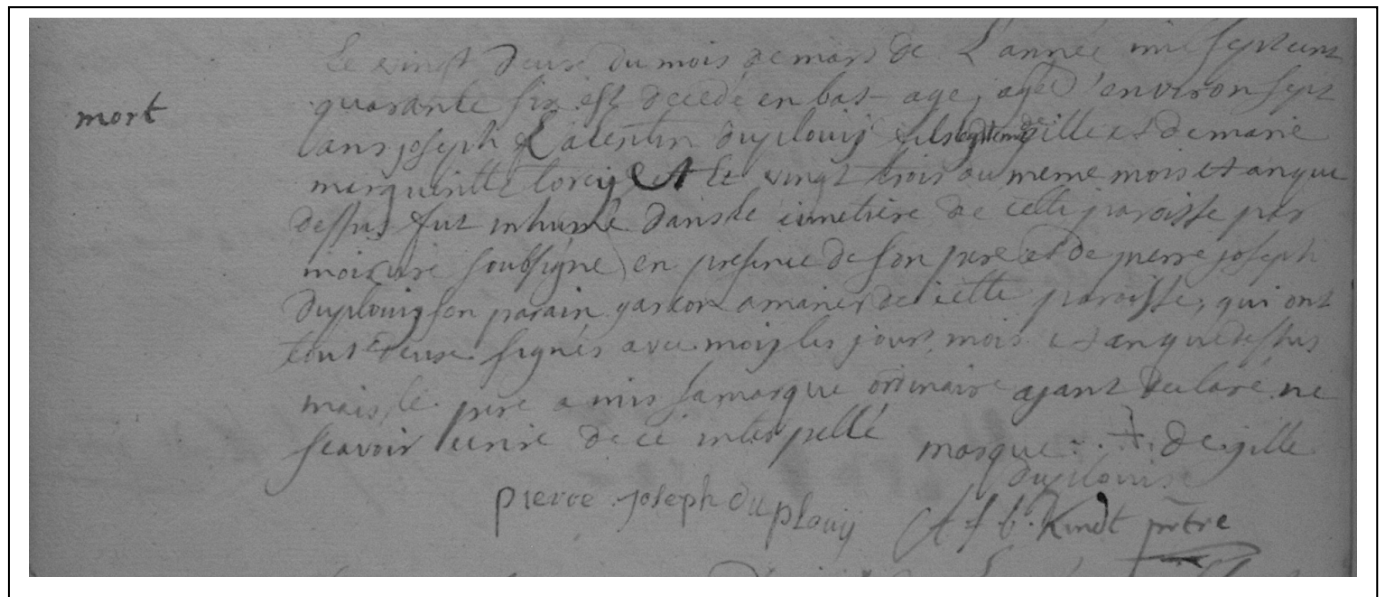 mort
Le vingt deuxe du mois de mars de L'année mil sept cent
quarante six est decedé en bas age, agé d'environ sept
ans joseph Valentin duplouij fils de gille et de marie
margueritte et Le vingt trois du meme mois et an que
dessus fut inhumé dans le cimetiere de cette paroisse par
moi soubsigné en presence de son pere et de pierre joseph
duplouij son parain garcon a marier de cette paroisse, qui ont
tout deuxe signés avec moij les jour, mois et an que dessus
mais le pere a mis sa marque ordinaire ajant declaré ne
scavoir ecrire de ce interpellé marque de gille
duplouis
pierre joseph du plouij A f b. Kindt prêtre